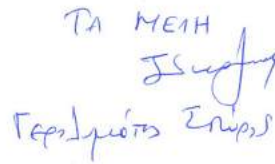 ΤΑ ΜΕΛΗ
Γερολυμάτος Σπύρος